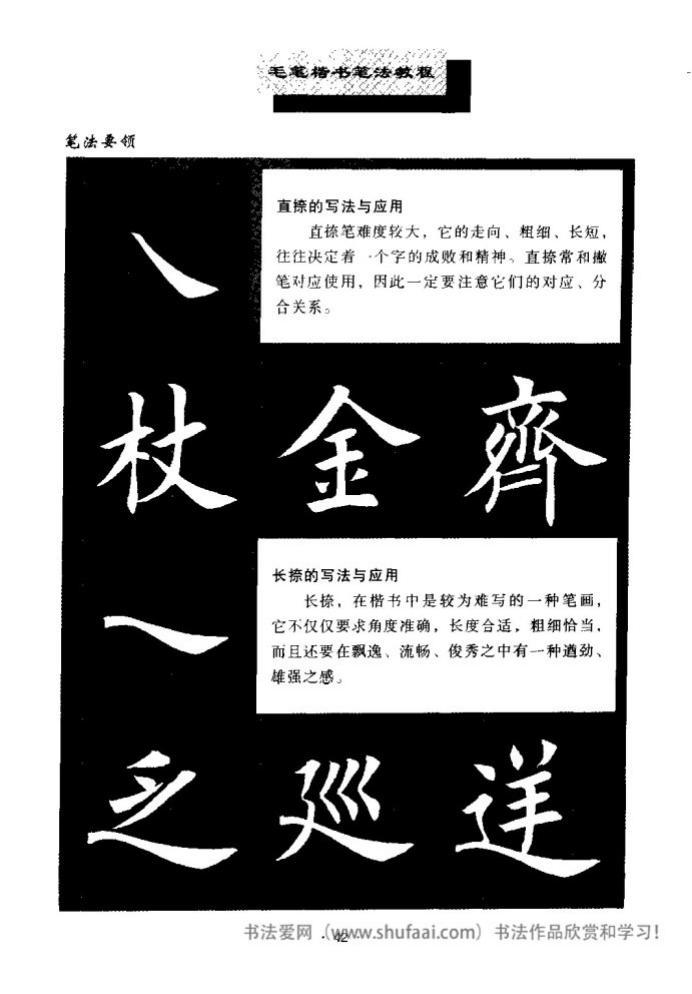 毛笔楷书笔法教程
笔法要领
直捺的写法与应用
直捺笔难度较大，它的走向、粗细、长短，
往往决定着一个字的成败和精神。直捺常和撇
笔对应使用，因此一定要注意它们的对应、分
合关系。
杖 金 齊
长捺的写法与应用
长捺，在楷书中是较为难写的一种笔画，
它不仅仅要求角度准确，长度合适，粗细恰当，
而且还要在飘逸、流畅、俊秀之中有一种遒劲、
雄强之感。
乏 廵 逆
· 42 ·
书法爱网（www.shufaai.com）书法作品欣赏和学习！